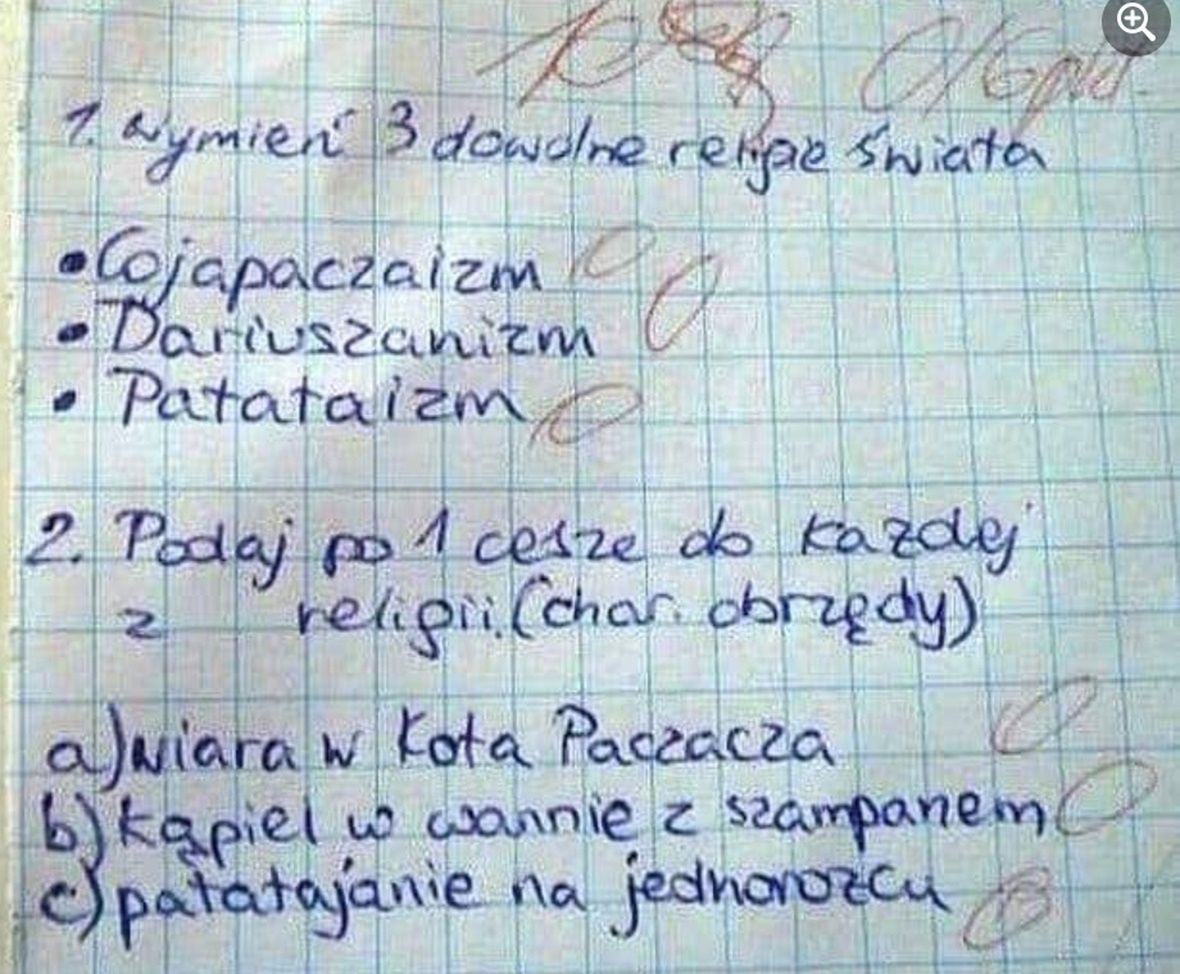 0/6 pkt.
1. Wymień 3 dowolne religie świata
• Cojapaczaizm 0
• Dariuszanizm 0
• Patataizm 0
2. Podaj po 1 cesze do każdej
z religii. (char. obrzędy)
a) wiara w Kota Paczacza 0
b) kąpiel w wannie z szampanem 0
c) patatajanie na jednorożcu 0